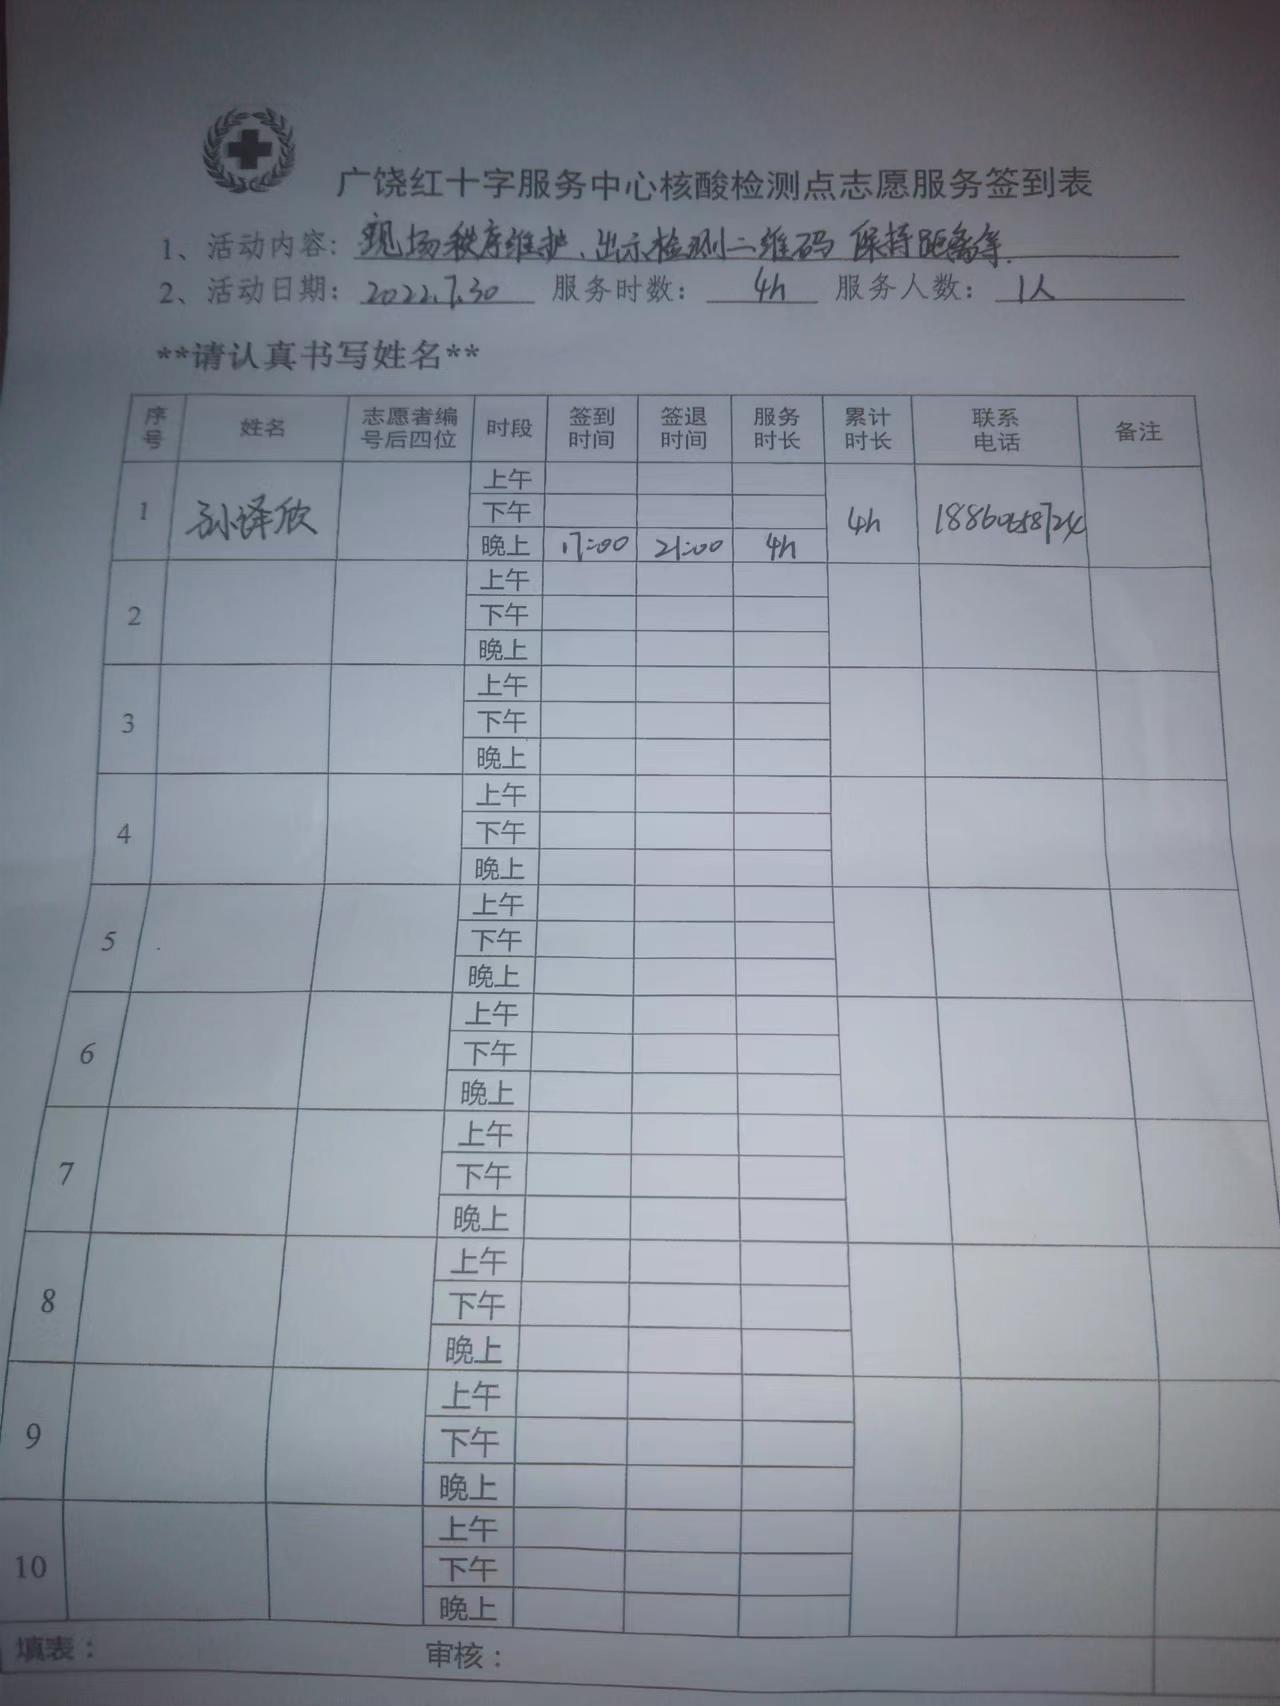 广饶红十字服务中心核酸检测点志愿服务签到表
1、活动内容：现场秩序维护、出示检测二维码 保持距离等.
2、活动日期：2022.7.30 服务时数：4h 服务人数：1人
**请认真书写姓名**
序号 姓名 志愿者编号后四位 时段 签到时间 签退时间 服务时长 累计时长 联系电话 备注
1 孙译欣 上午
下午
晚上 17:00 21:00 4h 4h
2 上午
下午
晚上
3 上午
下午
晚上
4 上午
下午
晚上
5 上午
下午
晚上
6 上午
下午
晚上
7 上午
下午
晚上
8 上午
下午
晚上
9 上午
下午
晚上
10 上午
下午
晚上
填表： 审核：